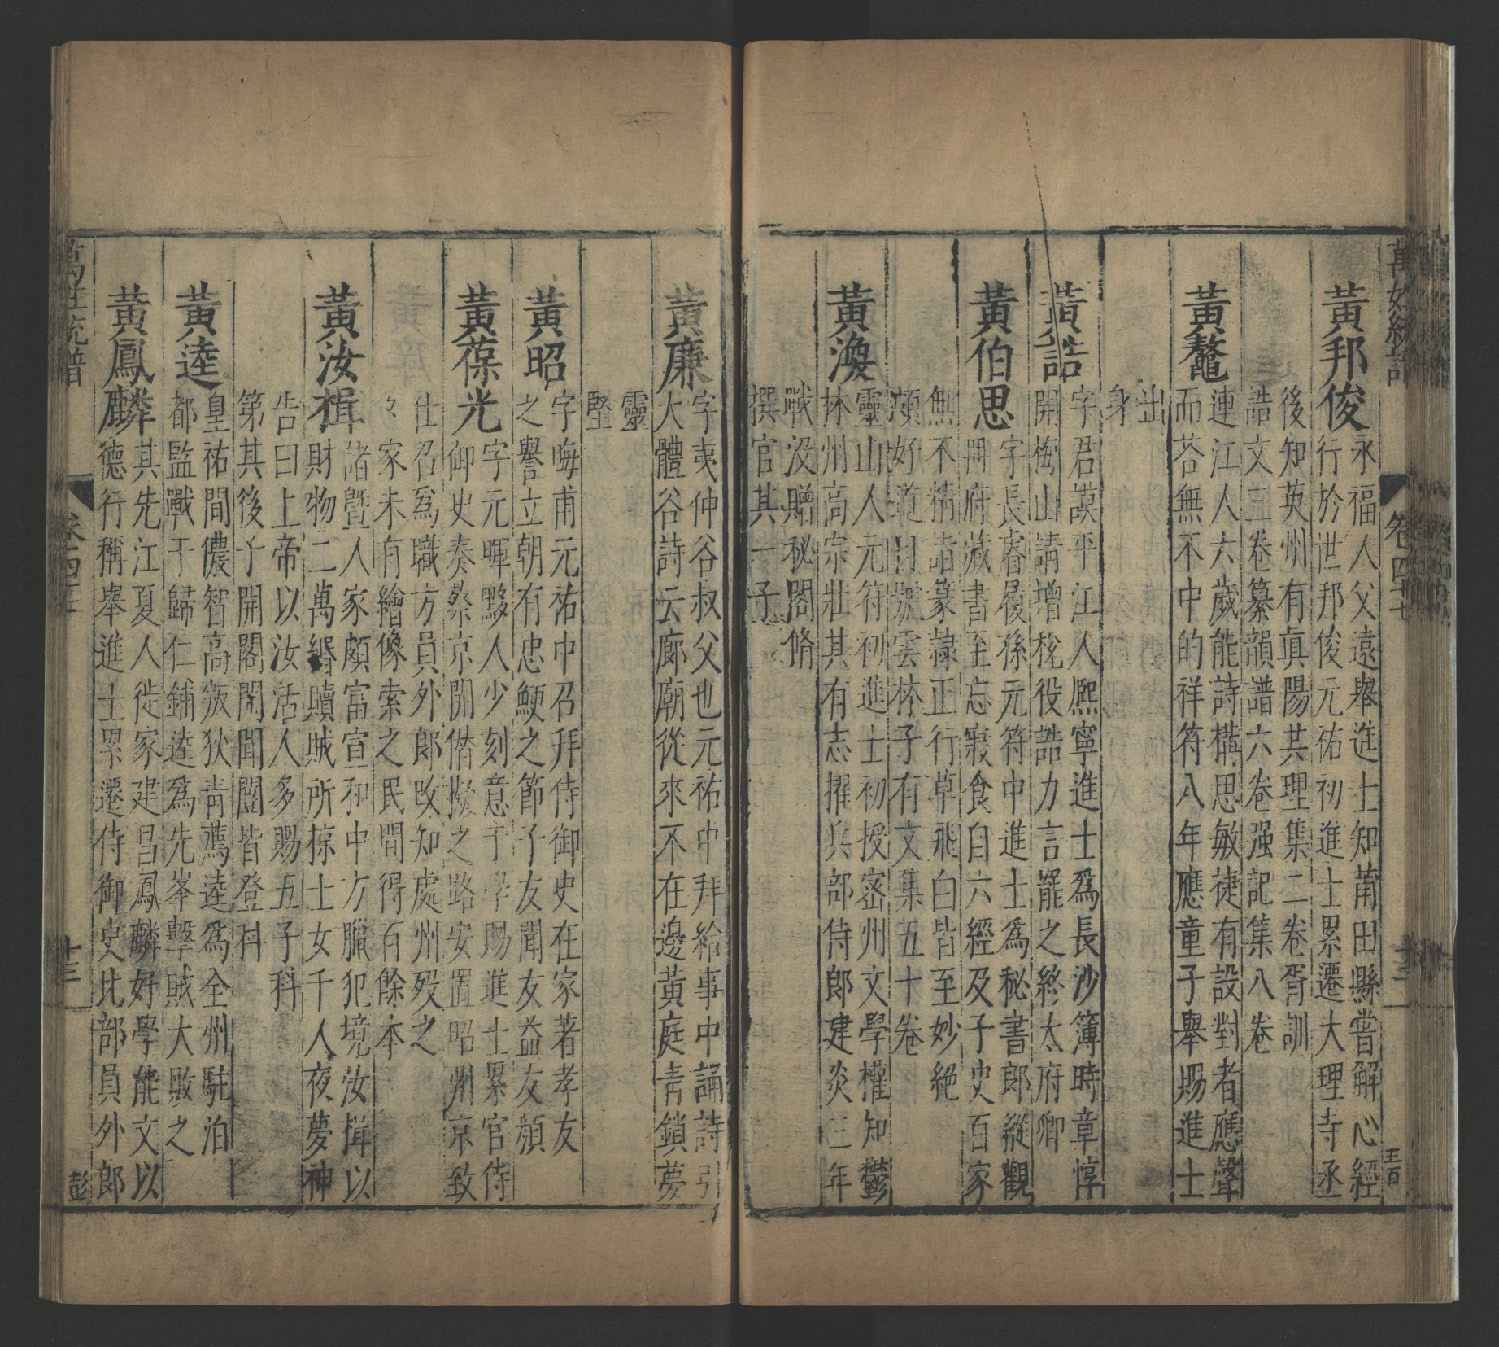 萬姓統譜 卷四十七 十三 王百
黃邦俊
永福人父遠舉進士知莆田縣嘗解心經
行於世邦俊元祐初進士累遷大理寺丞
後知英州有真陽其理集二卷胥訓
誥文五卷纂韻譜六卷强記集八卷
黃鼇
連江人六歲能詩構思敏捷有設對者應聲
而荅無不中的祥符八年應童子舉賜進士
出
身
黃誥
字君謨平江人熙寧進士爲長沙簿時章惇
開梅山請增稅役誥力言罷之終太府卿
黃伯思
字長睿履孫元符中進士爲秘書郎縱觀
冊府藏書至忘寢食自六經及子史百家
無不精詣篆隸正行草飛白皆至妙絕
頗好道自號雲林子有文集五十卷
黃渙
靈山人元符初進士初授密州文學權知鬱
林州高宗壯其有志擢兵部侍郎建炎三年
戰没贈秘閣脩
撰官其一子
黃廉
字夷仲谷叔父也元祐中拜給事中誦詩引
大體谷詩云廊廟從來不在邊黃庭青鎖夢
靈
堅
黃昭
字晦甫元祐中召拜侍御史在家著孝友
之譽立朝有忠鯁之節子友聞友益友顔
黃葆光
字元暉黟人少刻意于學賜進士累官侍
御史奏蔡京開僭擬之路安置昭州京致
仕召爲職方員外郎改知處州歿之
々家未有繪像索之民間得百餘本
黃汝楫
諸曁人家頗富宣和中方臘犯境汝楫以
財物二萬緡贖賊所掠士女千人夜夢神
告曰上帝以汝活人多賜五子科
第其後子開閣閌聞誾皆登科
黃逵
皇祐間儂智高叛狄青薦逵爲全州駐泊
都監戰于歸仁鋪逵爲先峯擊賊大敗之
黃鳳麟
其先江夏人徙家建昌鳳麟好學能文以
德行稱舉進士累遷侍御史比部員外郎
萬姓統譜 卷 十三 彭